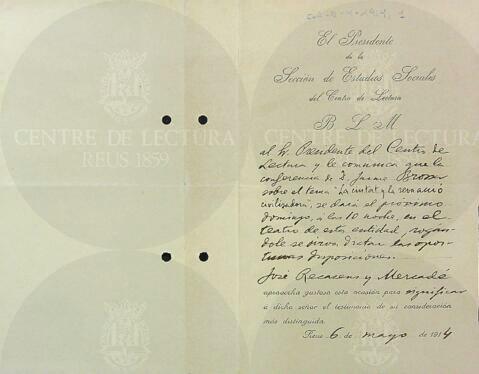 CENTRE DE LECTURA
REUS 1859
El Presidente
de la
Sección de Estudios Sociales
del Centro de Lectura
B L M
al Sr. Presidente del Centro de
Lectura y le comunica que la
conferencia de D. Jaime Brossa
sobre el tema "La ciutat y la renovació
civilisadora", se dará el próximo
domingo, á las 10 noche, en el
teatro de esta entidad, rogán-
dole se sirva dictar las opor-
tunas disposiciones.
José Recasens y Mercadé
aprovecha gustoso esta ocasión para significar
a dicho señor el testimonio de su consideración
más distinguida.
Reus 6 de mayo de 1914